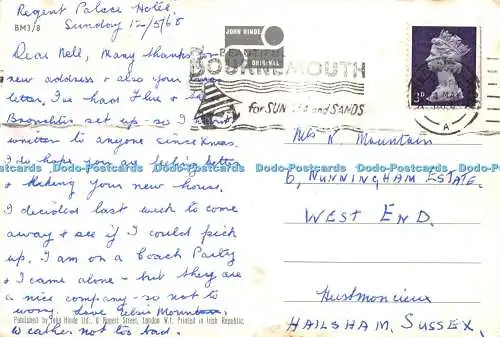 Regent Palace Hotel,
Sunday 12/5/68
BM3/8
Dear Nell, Many thanks for
new address & also your long
letter, I've had Flue &
Bronchitis set up - so I
written to anyone since Xmas.
I do hope you are feeling better
& liking your new home.
I decided last week to come
away & see if I could pick
up. I am on a Coach Party
& I came alone - but they are
a nice company - so not to
worry. Love Elsie Mountain
Weather not too bad.
Published by John Hinde Ltd., 6 Rupert Street, London W.1. Printed in Irish Republic.
JOHN HINDE
ORIGINAL
BEAUTIFUL
BOURNEMOUTH
for SUN and SANDS
3D
A
Mrs R. Mountain
6, Nunningham Estate.
West End.
Hurstmoncieux
Hailsham, Sussex.
Dodo-Postcards Dodo-Postcards Dodo-Postcards Dodo-Postcards
Dodo-Postcards Dodo-Postcards Dodo-Postcards Dodo-Postcards